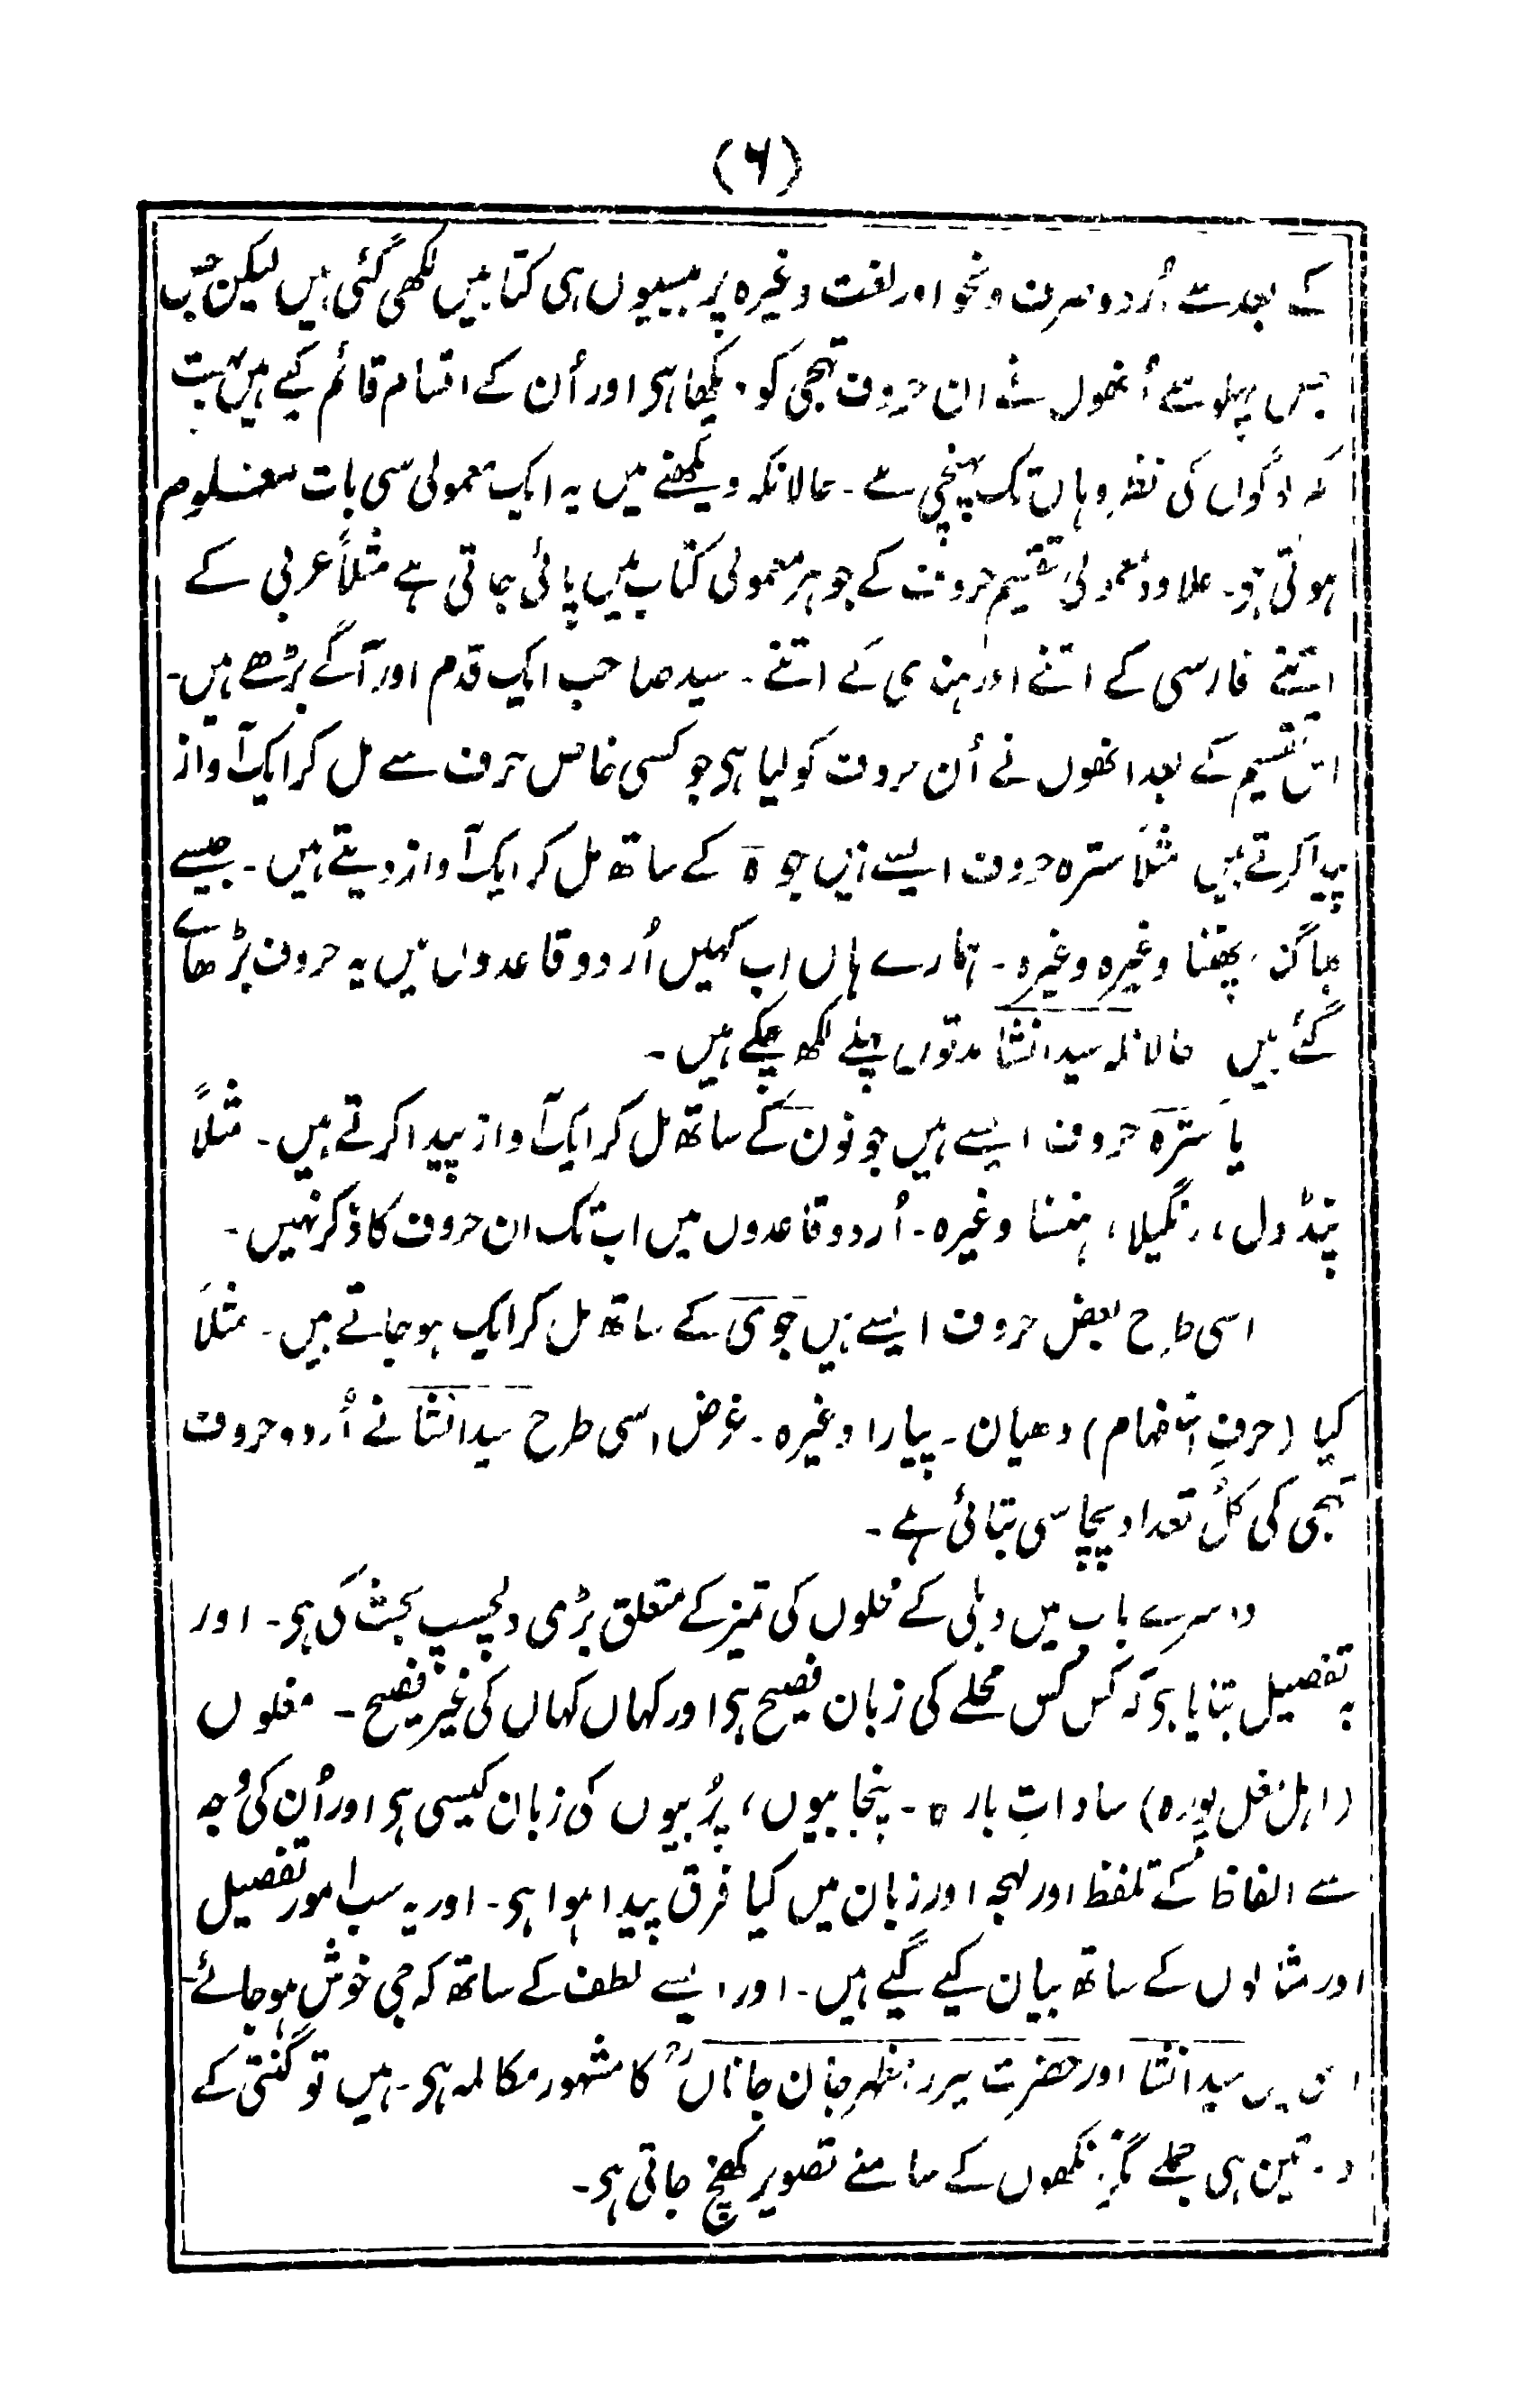 (۶)
کے بعد سے اُردو صرف و نحو اور لغت وغیرہ پر بیسیوں ہی کتابیں لکھی گئی ہیں لیکن جب
جس پہلو سے اُنھوں نے ان حروف تہجی کو دیکھا ہی اور اُن کے اقسام قائم کیے ہیں بہت
کم لوگوں کی نظر وہاں تک پہنچی ہے۔ حالانکہ دیکھنے میں یہ ایک معمولی سی بات معلوم
ہوتی ہی۔ علاوہ معمولی تقسیم حروف کے جو ہر معمولی کتاب میں پائی جاتی ہے مثلاً عربی کے
اتنے فارسی کے اتنے اور ہندی کے اتنے۔ سید صاحب ایک قدم اور آگے بڑھے ہیں۔
اس تقسیم کے بعد انھوں نے اُن حروف کو لیا ہی جو کسی خاص حرف سے مل کر ایک آواز
پیدا کرتے ہیں مثلاً سترہ حروف ایسے ہیں جو ہ کے ساتھ مل کر ایک آواز دیتے ہیں۔ جیسے
بھاگن، پھنا وغیرہ وغیرہ۔ ہمارے ہاں اب کہیں اُردو قاعدوں میں یہ حروف بڑھائے
گئے ہیں حالانکہ سید انشا مدتوں پہلے لکھ چکے ہیں۔
یا سترہ حروف ایسے ہیں جو نون کے ساتھ مل کر ایک آواز پیدا کرتے ہیں۔ مثلاً
پنڈول، رنگیلا، ہنسنا وغیرہ۔ اُردو قاعدوں میں اب تک ان حروف کا ذکر نہیں۔
اسی طرح بعض حروف ایسے ہیں جو ی کے ساتھ مل کر ایک ہو جاتے ہیں۔ مثلاً
کیا (حرفِ استفہام) دھیان۔ پیارا وغیرہ۔ غرض اسی طرح سید انشا نے اُردو حروف
تہجی کی کُل تعداد پچاسی بتائی ہے۔
دوسرے باب میں دہلی کے محلوں کی تمیز کے متعلق بڑی دلچسپ بحث کی ہی۔ اور
بہ تفصیل بتایا ہی کہ کس کس محلے کی زبان فصیح ہی اور کہاں کہاں کی غیر فصیح۔ مغلوں
(اہل مغل پورہ) ساداتِ بارہ۔ پنجابیوں، پُربیوں کی زبان کیسی ہی اور اُن کی وجہ
سے الفاظ کے تلفظ اور لہجہ اور زبان میں کیا فرق پیدا ہوا ہی۔ اور یہ سب امور تفصیل
اور مثالوں کے ساتھ بیان کیے گیے ہیں۔ اور ایسے لطف کے ساتھ کہ جی خوش ہو جائے۔
اسی میں سید انشا اور حضرت میرزا مظہر جان جاناںؒ کا مشہور مکالمہ ہی۔ ہیں تو گنتی کے
دو تین ہی جملے مگر آنکھوں کے سامنے تصویر کھنچ جاتی ہی۔